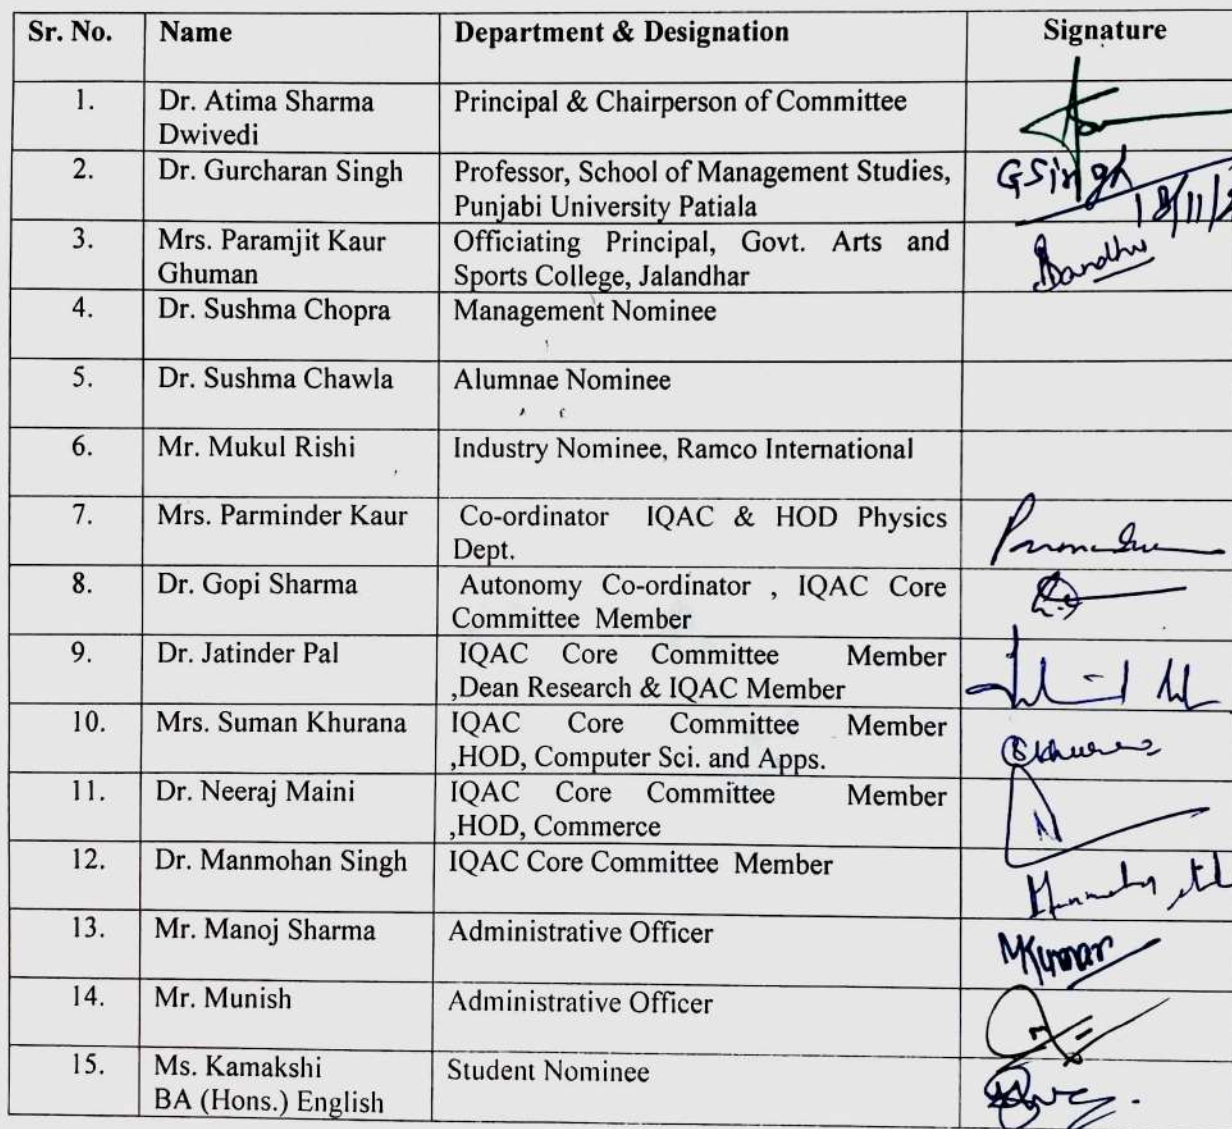 Sr. No. Name Department & Designation Signature
1. Dr. Atima Sharma Principal & Chairperson of Committee
Dwivedi
2. Dr. Gurcharan Singh Professor, School of Management Studies, GSingh
Punjabi University Patiala 18/11/2
3. Mrs. Paramjit Kaur Officiating Principal, Govt. Arts and
Ghuman Sports College, Jalandhar
4. Dr. Sushma Chopra Management Nominee
5. Dr. Sushma Chawla Alumnae Nominee
6. Mr. Mukul Rishi Industry Nominee, Ramco International
7. Mrs. Parminder Kaur Co-ordinator IQAC & HOD Physics
Dept.
8. Dr. Gopi Sharma Autonomy Co-ordinator , IQAC Core
Committee Member
9. Dr. Jatinder Pal IQAC Core Committee Member
,Dean Research & IQAC Member
10. Mrs. Suman Khurana IQAC Core Committee Member
,HOD, Computer Sci. and Apps.
11. Dr. Neeraj Maini IQAC Core Committee Member
,HOD, Commerce
12. Dr. Manmohan Singh IQAC Core Committee Member
13. Mr. Manoj Sharma Administrative Officer MKumar
14. Mr. Munish Administrative Officer
15. Ms. Kamakshi Student Nominee
BA (Hons.) English